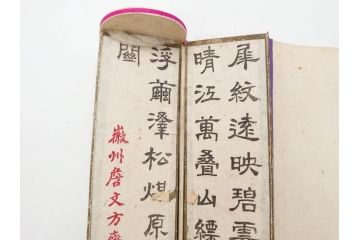 犀紋遠映碧雲
晴江萬疊山縹
浮繭澤松煤原
關
徽州詹文方齋